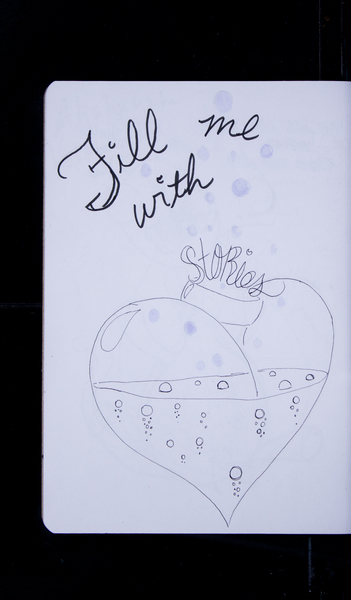 Fill me
with
Stories